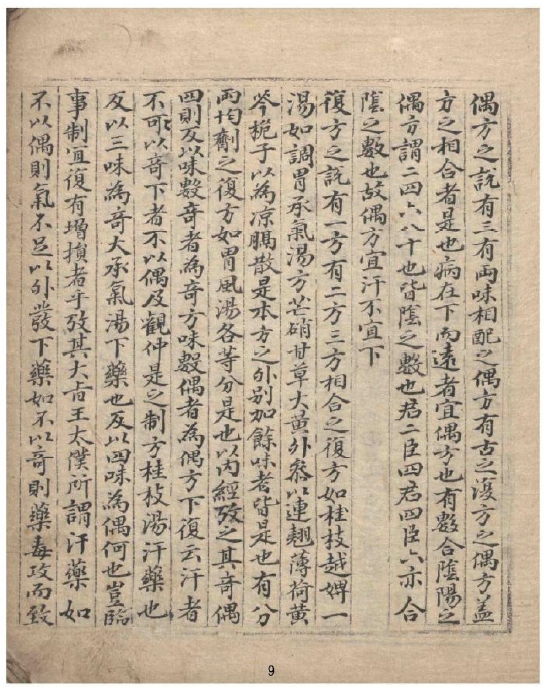 偶方之説有三有両味相配之偶方有古之複方之偶方盖
方之相合者是也病在下而遠者宜偶方也有数合陰陽之
偶方謂二四六八十也皆陰之数也君二臣四君四臣六亦合
陰之数也故偶方宜汗不宜下
復方之説有一方有二方三方相合之復方如桂枝越婢一
湯如調胃承氣湯方芒硝甘草大黄外叅以連翹薄荷黄
芩梔子以為凉膈散是本方之外别加餘味者皆是也有分
両均劑之復方如胃風湯各等分是也以内經攷之其奇偶
四則反以味数奇者為奇方味数偶者為偶方下復云汗者
不可以奇下者不以偶及觀仲是之制方桂枝湯汗藥也
反以三味為奇大承氣湯下藥也反以四味為偶何也豈臨
事制宜復有増損者乎攷其大旨王太僕所謂汗藥如
不以偶則氣不足以外發下藥如不以奇則藥毒攻而致
9